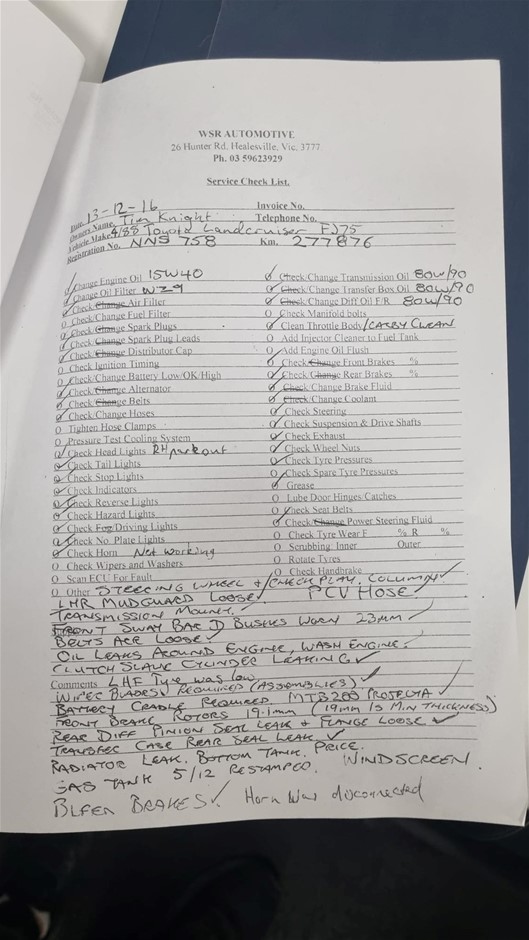 WSR AUTOMOTIVE
26 Hunter Rd, Healesville, Vic, 3777
Ph. 03 59623929
Service Check List.
Date. 13-12-16 Invoice No.
Owners Name. Tim Knight Telephone No.
Vehicle Make. 4/88 Toyota Landcruiser FJ75
Registration No. NNS 758 Km. 277876
Change Engine Oil 15W40
Change Oil Filter WZ9
O Check/Change Air Filter
O Check/Change Fuel Filter
O Check/Change Spark Plugs
O Check/Change Spark Plug Leads
O Check/Change Distributor Cap
O Check Ignition Timing
O Check/Change Battery Low/OK/High
O Check/Change Alternator
O Check/Change Belts
O Check/Change Hoses
O Tighten Hose Clamps
O Pressure Test Cooling System
O Check Head Lights RH park out
O Check Tail Lights
O Check Stop Lights
O Check Indicators
O Check Reverse Lights
O Check Hazard Lights
O Check Fog/Driving Lights
O Check No. Plate Lights
O Check Horn Not working
O Check Wipers and Washers
O Scan ECU For Fault
O Check/Change Transmission Oil 80W/90
O Check/Change Transfer Box Oil 80W/90
O Check/Change Diff Oil F/R 80W/90
O Check Manifold bolts
O Clean Throttle Body/CARBY CLEAN
O Add Injector Cleaner to Fuel Tank
O Add Engine Oil Flush
O Check/Change Front Brakes %
O Check/Change Rear Brakes %
O Check/Change Brake Fluid
O Check/Change Coolant
O Check Steering
O Check Suspension & Drive Shafts
O Check Exhaust
O Check Wheel Nuts
O Check Tyre Pressures
O Check Spare Tyre Pressures
O Grease
O Lube Door Hinges/Catches
O Check Seat Belts
O Check/Change Power Steering Fluid
O Check Tyre Wear F % R %
O Scrubbing: Inner Outer
O Rotate Tyres
O Check Handbrake
O Other STEERING WHEEL + CHECK PLAY, COLUMN
LHR MUDGUARD LOOSE PCV HOSE
TRANSMISSION MOUNT.
FRONT SWAY BAR D BUSHES WORN 23mm
BELTS ARE LOOSE
OIL LEAKS AROUND ENGINE, WASH ENGINE.
CLUTCH SLAVE CYLINDER LEAKING
Comments LHF Tyre was low
WIPER BLADES REQUIRED (ASSEMBLIES)
BATTERY CRADLE REQUIRED MTB200 PROJECTA
FRONT BRAKE ROTORS 19.1mm (19mm IS MIN THICKNESS)
REAR DIFF PINION SEAL LEAK & FLANGE LOOSE
TRANSFER CASE REAR SEAL LEAK
RADIATOR LEAK. BOTTOM TANK, PRICE.
GAS TANK 5/12 RESTAMPED. WINDSCREEN.
BLEED BRAKES Horn Was disconnected